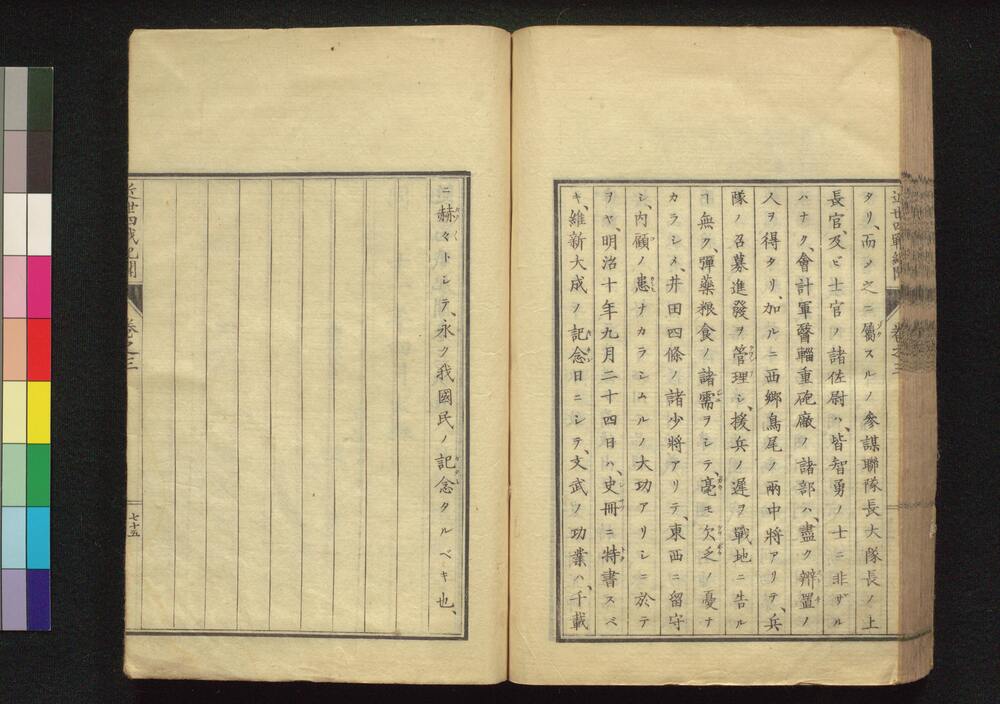 タリ、而シテ之ニ屬スルノ參謀聯隊長大隊長ノ上
長官、及ビ士官ノ諸佐尉ハ、皆智勇ノ士ニ非ザル
ハナク、會計軍醫輜重砲廠ノ諸部ハ、盡ク辨置ノ
人ヲ得タリ、加ルニ西郷鳥尾ノ兩中將アリテ、兵
隊ノ召募進發ヲ管理シ、援兵ノ遲ヲ戰地ニ告ル
コ無ク、彈藥粮食ノ諸需ヲシテ、毫モ欠乏ノ憂ナ
カラシメ、井田四條ノ諸少將アリテ、東西ニ留守
シ、内顧ノ患ナカラシムルノ大功アリシニ於テ
ヲヤ、明治十年九月二十四日ハ、史冊ニ特書スベ
キ、維新大成ノ記念日ニシテ、文武ノ功業ハ、千載
ニ赫々トシテ、永ク我國民ノ記念タルベキ也、
卷之三
七十五